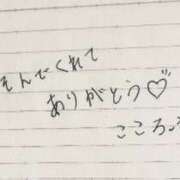 えんでくれて
ありがとう♡
こころ。